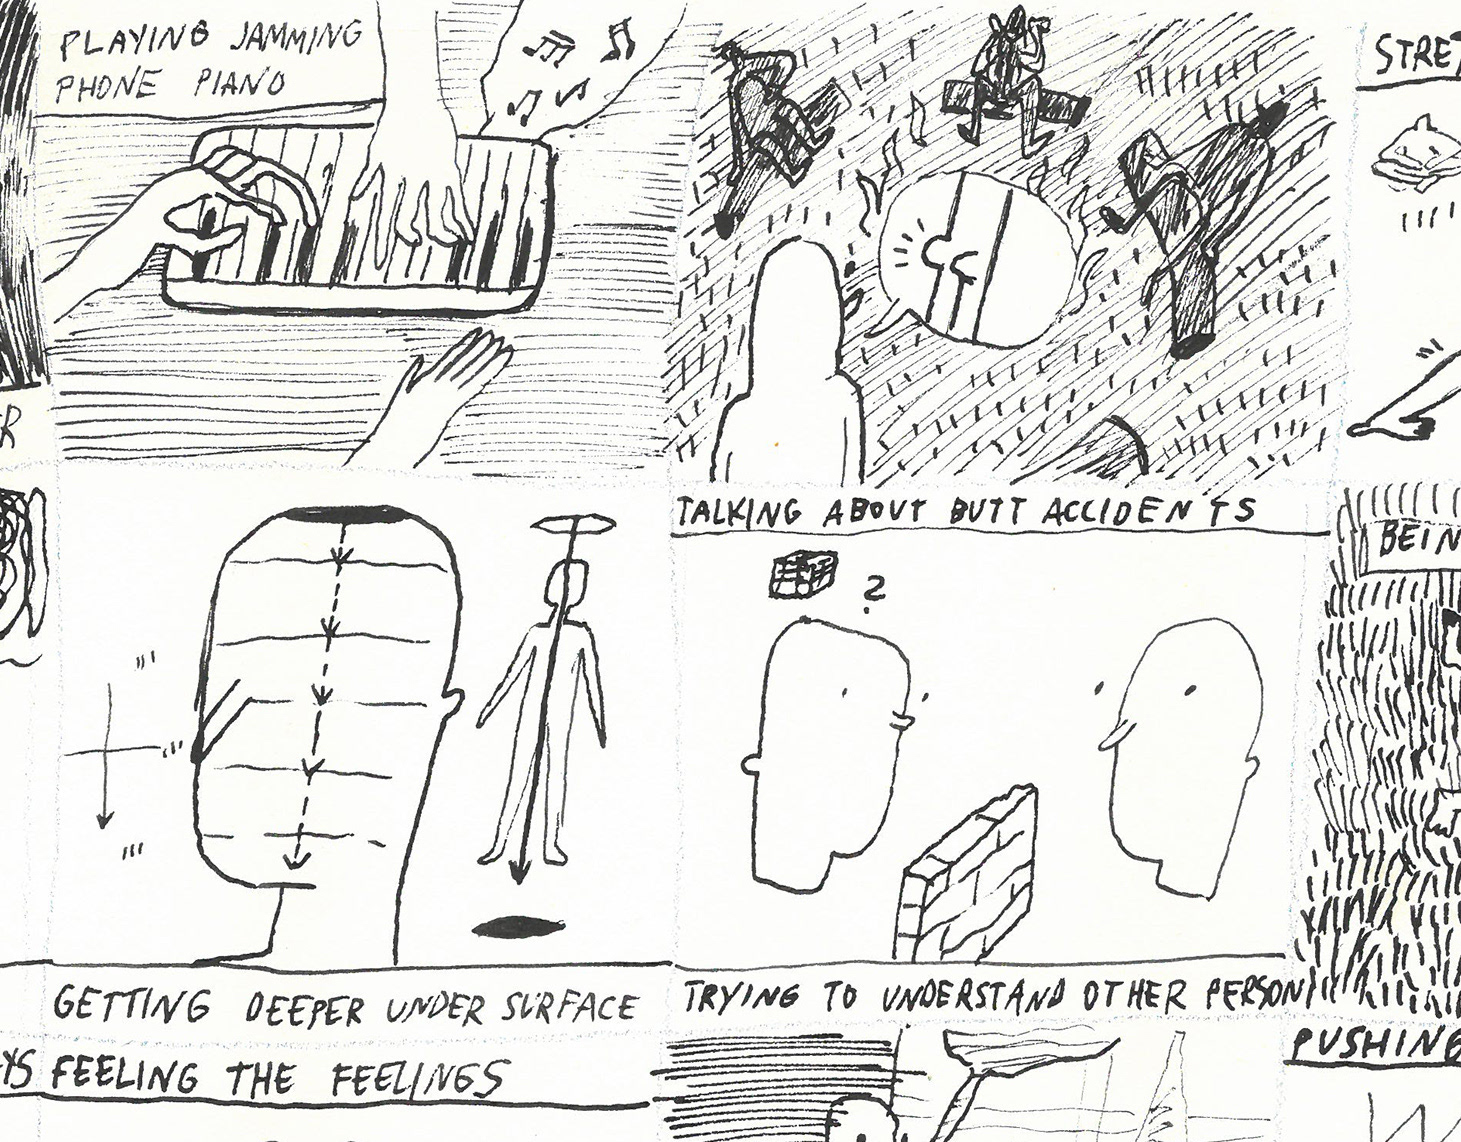 PLAYING JAMMING
PHONE PIANO
STRE
R
TALKING ABOUT BUTT ACCIDENTS
?
BEIN
GETTING DEEPER UNDER SURFACE
TRYING TO UNDERSTAND OTHER PERSON
YS
FEELING THE FEELINGS
PUSHING